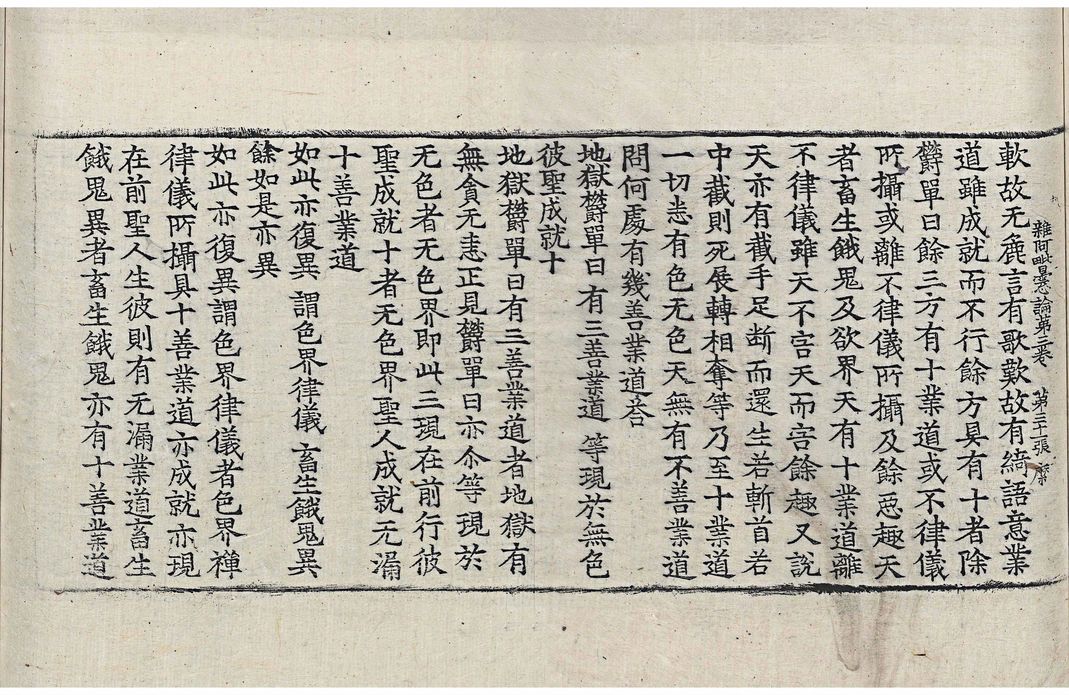 軟故无麁言有歌歎故有綺語意業
雜阿毗曇心論第三卷 第三十張
道雖成就而不行餘方具有十者除
欝單曰餘三方有十業道或不律儀
所攝或離不律儀所攝及餘惡趣天
者畜生餓鬼及欲界天有十業道離
不律儀雖天不害天而害餘趣又說
天亦有截手足断而還生若斬首若
中截則死展轉相奪等乃至十業道
一切恚有色无色天無有不善業道
問何處有幾善業道荅
地獄欝單曰有三善業道 等現於無色
彼聖成就十
地獄欝單曰有三善業道者地獄有
無貪无恚正見欝單曰亦尒等現於
无色者无色界即此三現在前行彼
聖成就十者无色界聖人成就无漏
十善業道
如此亦復異 謂色界律儀 畜生餓鬼異
餘如是亦異
如此亦復異謂色界律儀者色界禪
律儀所攝具十善業道亦成就亦現
在前聖人生彼則有无漏業道畜生
餓鬼異者畜生餓鬼亦有十善業道